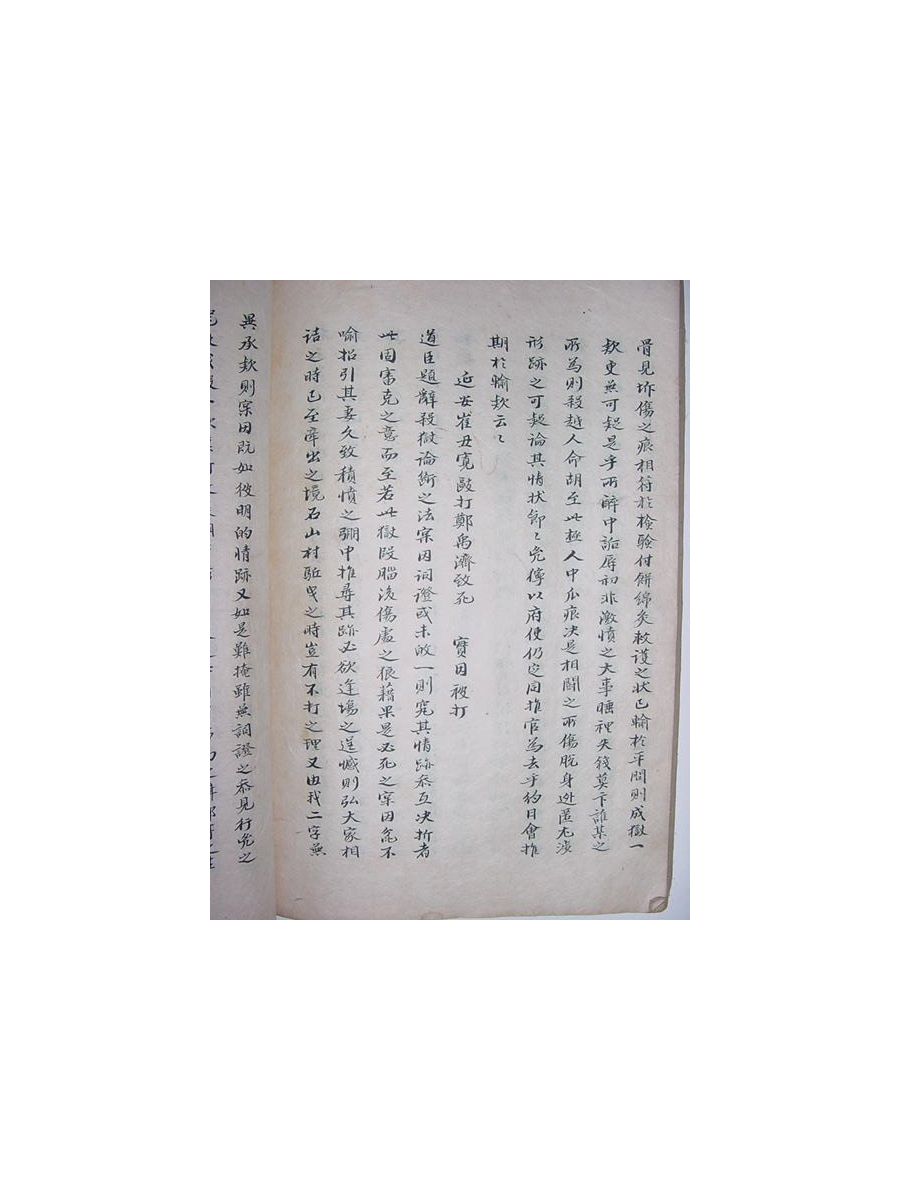 骨見坼傷之痕相符於檢驗付餠綿灸救護之狀已輸於平問則成獄一
欵更無可疑是乎所醉中詬辱初非激憤之大事睡裡失後莫卞誰某之
所為則殺越人命胡至此極人中爪痕決是相鬪之所傷脫身逊匿尤涉
形跡之可疑論其情狀節〻兇獰以府使仍定同推官為去乎約日會推
期於輸欵云〻
延安崔丑寬毆打鄭禹濟致死 實因被打
道臣題辭殺獄論衡之法案因詞證或未的一則究其情跡叅互決折者
此固審克之意而至若此獄段腦後傷處之狼藉果是必死之案因兺不
喻招引其妻久致積憤之弸中推尋其跡必欲逢場之逞憾則弘大家相
詰之時已至曳出之境石山村驅曳之時豈有不打之理又由我二字無
異承欵則案因既如彼明的情跡又如是難掩雖無詞證之叅見行兇之